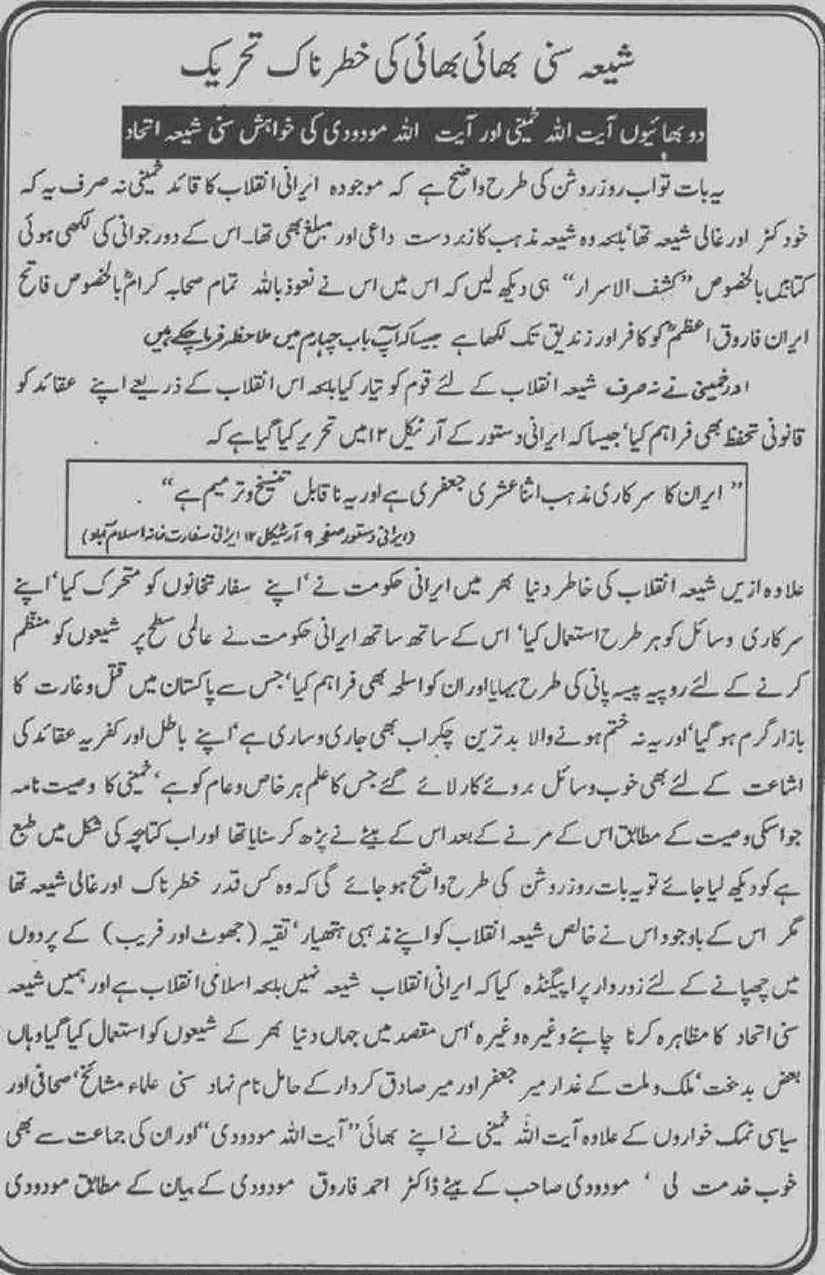 شیعہ سنی بھائی بھائی کی خطرناک تحریک
دو بھائیوں آیت اللہ خمینی اور آیت اللہ مودودی کی خواہش سنی شیعہ اتحاد
یہ بات تو اب روز روشن کی طرح واضح ہے کہ موجودہ ایرانی انقلاب کا قائد خمینی نہ صرف یہ کہ
خود کٹر اور غالی شیعہ تھا‘ بلکہ وہ شیعہ مذہب کا زبردست داعی اور مبلغ بھی تھا۔ اس کے دور جوانی کی لکھی ہوئی
کتابیں بالخصوص ”کشف الاسرار“ ہی دیکھ لیں کہ اس میں اس نے نعوذ باللہ تمام صحابہ کرامؓ بالخصوص فاتح
ایران فاروق اعظمؓ کو کافر اور زندیق تک لکھا ہے جیسا کہ آپ باب چہارم میں ملاحظہ فرما چکے ہیں
اور خمینی نے نہ صرف شیعہ انقلاب کے لئے قوم کو تیار کیا بلکہ اس انقلاب کے ذریعے اپنے عقائد کو
قانونی تحفظ بھی فراہم کیا‘ جیسا کہ ایرانی دستور کے آرٹیکل ۱۲ میں تحریر کیا گیا ہے کہ
” ایران کا سرکاری مذہب اثنا عشری جعفری ہے اور یہ ناقابل تنسیخ و ترمیم ہے“ .
(ایرانی دستور صفحہ ۹ آرٹیکل ۱۲ ایرانی سفارت خانہ اسلام آباد)
علاوہ ازیں شیعہ انقلاب کی خاطر دنیا بھر میں ایرانی حکومت نے‘ اپنے سفارتخانوں کو متحرک کیا‘ اپنے
سرکاری وسائل کو ہر طرح استعمال کیا‘ اس کے ساتھ ساتھ ایرانی حکومت نے عالمی سطح پر شیعوں کو منظم
کرنے کے لئے روپیہ پیسہ پانی کی طرح بہایا اور ان کو اسلحہ بھی فراہم کیا‘ جس سے پاکستان میں قتل و غارت کا
بازار گرم ہو گیا‘ اور یہ نہ ختم ہونے والا بدترین چکر اب بھی جاری و ساری ہے‘ اپنے باطل اور کفریہ عقائد کی
اشاعت کے لئے بھی خوب وسائل بروئے کار لائے گئے جس کا علم ہر خاص و عام کو ہے‘ خمینی کا وصیت نامہ
جو اسکی وصیت کے مطابق اس کے مرنے کے بعد اس کے بیٹے نے پڑھ کر سنایا تھا اور اب کتابچہ کی شکل میں طبع
ہے کو دیکھ لیا جائے تو یہ بات روز روشن کی طرح واضح ہو جائے گی کہ وہ کس قدر خطرناک اور غالی شیعہ تھا
مگر اس کے باوجود اس نے خالص شیعہ انقلاب کو اپنے مذہبی ہتھیار‘ تقیہ (جھوٹ اور فریب) کے پردوں
میں چھپانے کے لئے زوردار پراپیگنڈہ کیا کہ ایرانی انقلاب شیعہ نہیں بلکہ اسلامی انقلاب ہے اور ہمیں شیعہ
سنی اتحاد کا مظاہرہ کرنا چاہئے وغیرہ وغیرہ‘ اس مقصد میں جہاں دنیا بھر کے شیعوں کو استعمال کیا گیا وہاں
بعض بدبخت‘ ملک و ملت کے غدار میر جعفر اور میر صادق کردار کے حامل نام نہاد سنی علماء مشائخ‘ صحافی اور
سیاسی نمک خواروں کے علاوہ آیت اللہ خمینی نے اپنے بھائی ”آیت اللہ مودودی“ اور ان کی جماعت سے بھی
خوب خدمت لی ‘ مودودی صاحب کے بیٹے ڈاکٹر احمد فاروق مودودی کے بیان کے مطابق مودودی